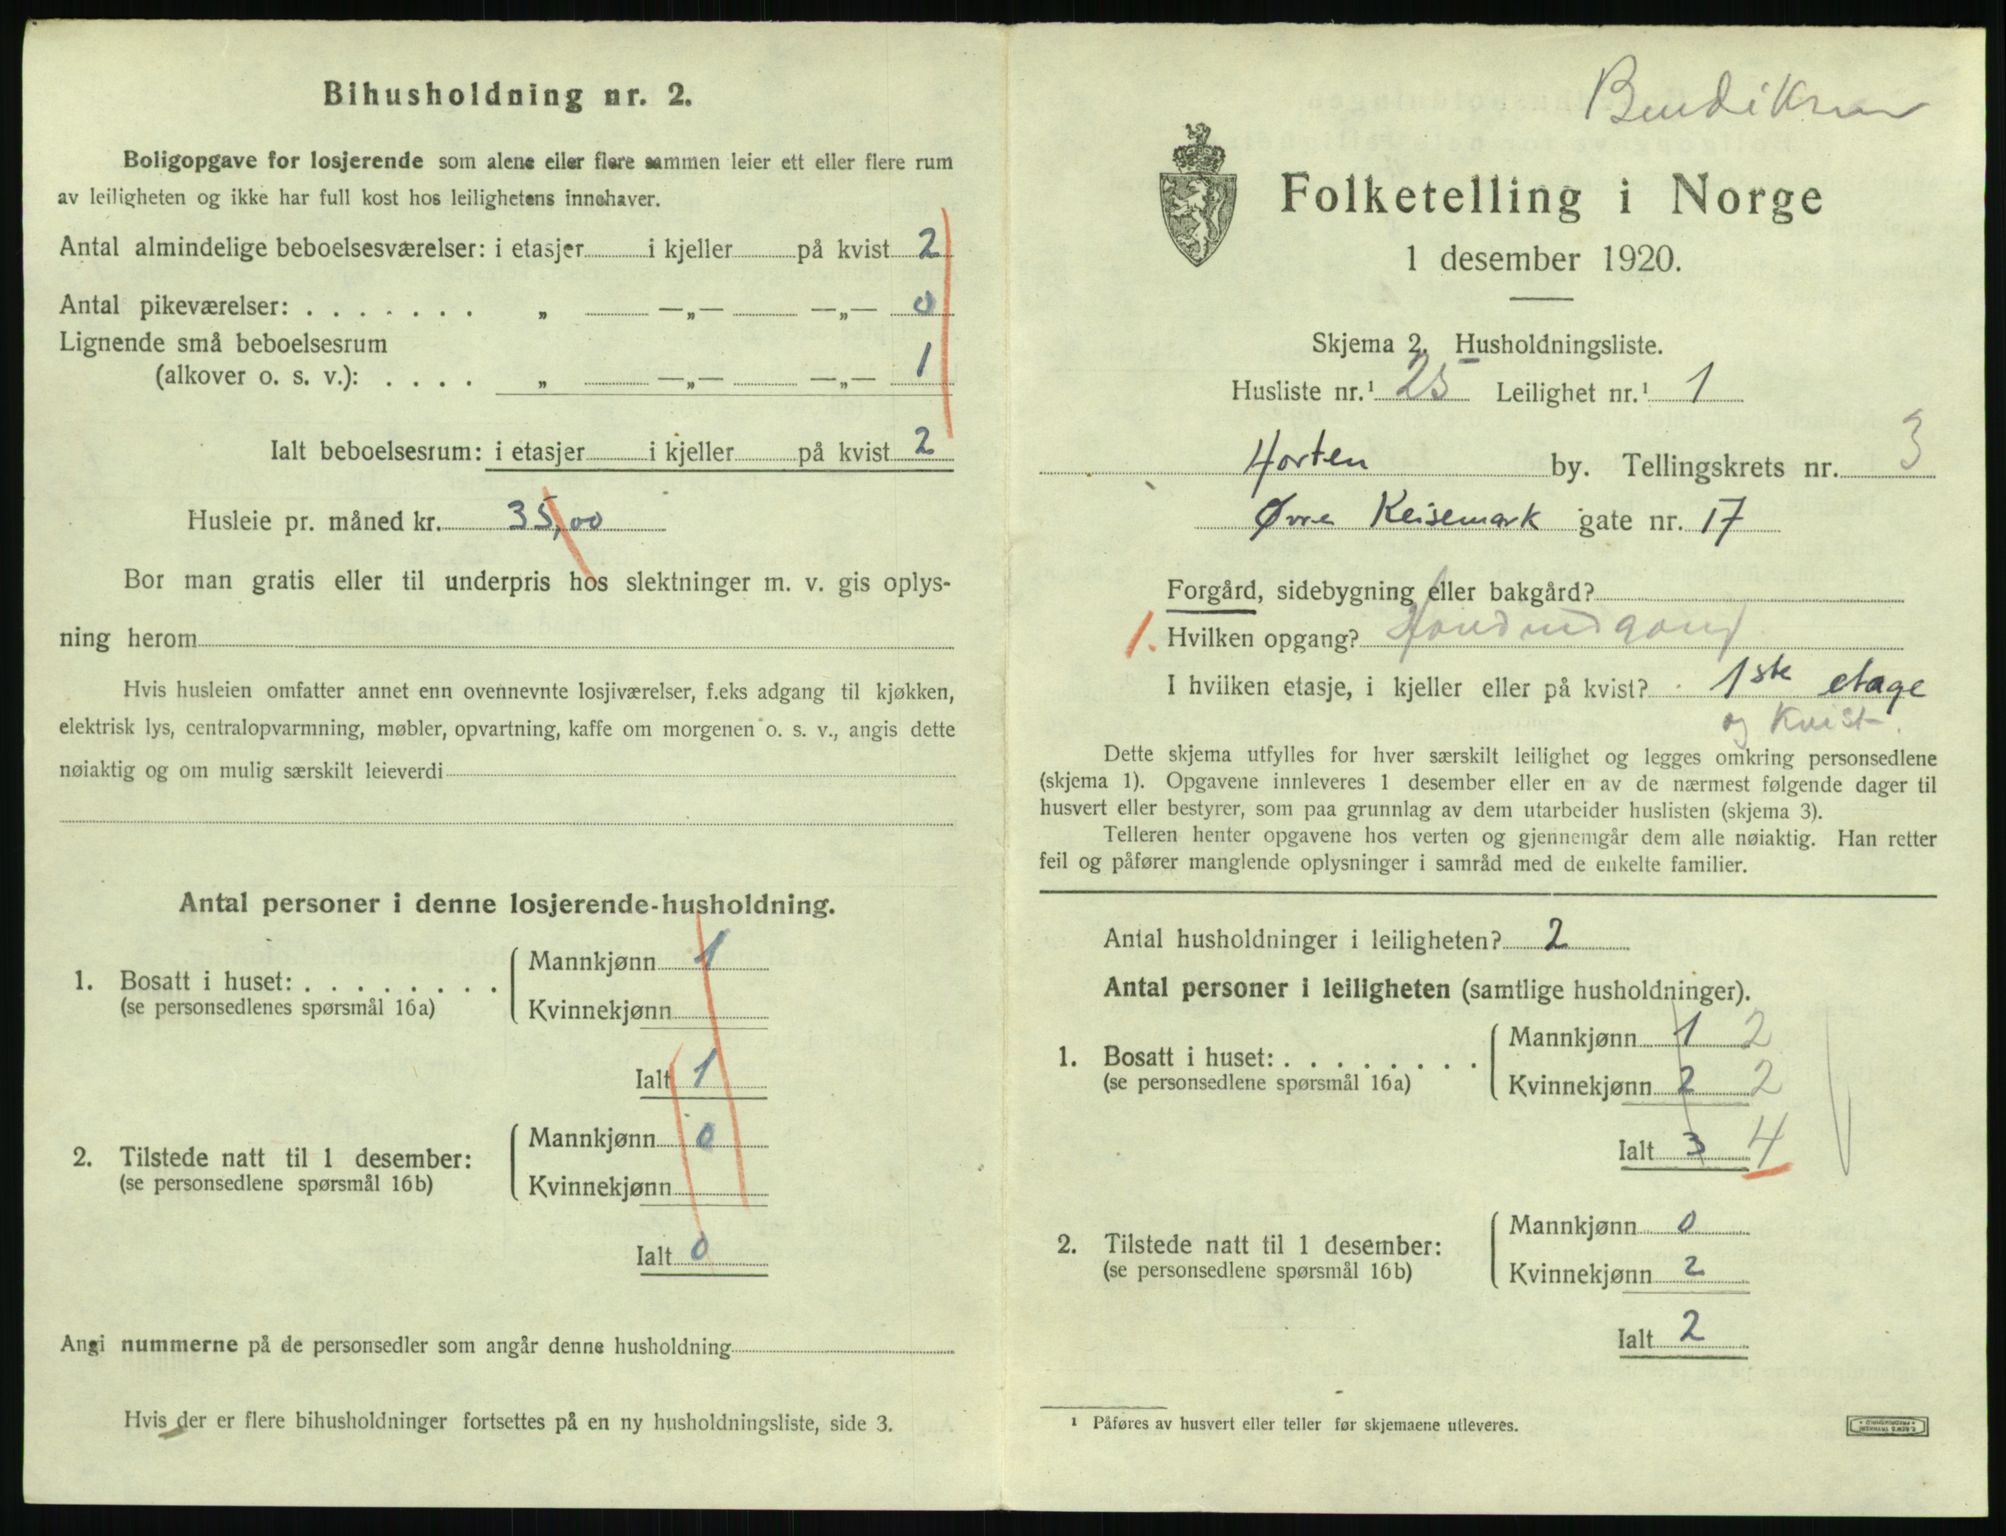 Bihusholdning nr. 2.
Boligopgave for losjerende som alene eller flere sammen leier ett eller flere rum
av leiligheten og ikke har full kost hos leilighetens innehaver.
Antal almindelige beboelsesværelser: i etasjer i kjeller på kvist 2
Antal pikeværelser: . . . . . . . „ —„— —„— 0
Lignende små beboelsesrum
(alkover o. s. v.): . . . . „ —„— —„— 1
Ialt beboelsesrum: i etasjer i kjeller på kvist 2
Husleie pr. måned kr. 35,00
Bor man gratis eller til underpris hos slektninger m. v. gis oplys-
ning herom
Hvis husleien omfatter annet enn ovennevnte losjiværelser, f.eks adgang til kjøkken,
elektrisk lys, centralopvarmning, møbler, opvartning, kaffe om morgenen o. s. v., angis dette
nøiaktig og om mulig særskilt leieverdi
Antal personer i denne losjerende-husholdning.
1. Bosatt i huset: . . . . . . . . Mannkjønn 1
(se personsedlenes spørsmål 16a) Kvinnekjønn
Ialt 1
2. Tilstede natt til 1 desember: Mannkjønn 0
(se personsedlene spørsmål 16b) Kvinnekjønn
Ialt 0
Angi nummerne på de personsedler som angår denne husholdning
Hvis der er flere bihusholdninger fortsettes på en ny husholdningsliste, side 3.
Bendiksen
Folketelling i Norge
1 desember 1920.
Skjema 2. Husholdningsliste.
Husliste nr.¹ 25 Leilighet nr.¹ 1
Horten by. Tellingskrets nr. 3
Øvre Keisemark gate nr. 17
Forgård, sidebygning eller bakgård?
1. Hvilken opgang?
I hvilken etasje, i kjeller eller på kvist? 1ste etage
og Kvist.
Dette skjema utfylles for hver særskilt leilighet og legges omkring personsedlene
(skjema 1). Opgavene innleveres 1 desember eller en av de nærmest følgende dager til
husvert eller bestyrer, som paa grunnlag av dem utarbeider huslisten (skjema 3).
Telleren henter opgavene hos verten og gjennemgår dem alle nøiaktig. Han retter
feil og påfører manglende oplysninger i samråd med de enkelte familier.
Antal husholdninger i leiligheten? 2
Antal personer i leiligheten (samtlige husholdninger).
1. Bosatt i huset: . . . . . . . . Mannkjønn 1 2
(se personsedlene spørsmål 16a) Kvinnekjønn 2 2
Ialt 3 4
2. Tilstede natt til 1 desember: Mannkjønn 0
(se personsedlene spørsmål 16b) Kvinnekjønn 2
Ialt 2
¹ Påføres av husvert eller teller før skjemaene utleveres.